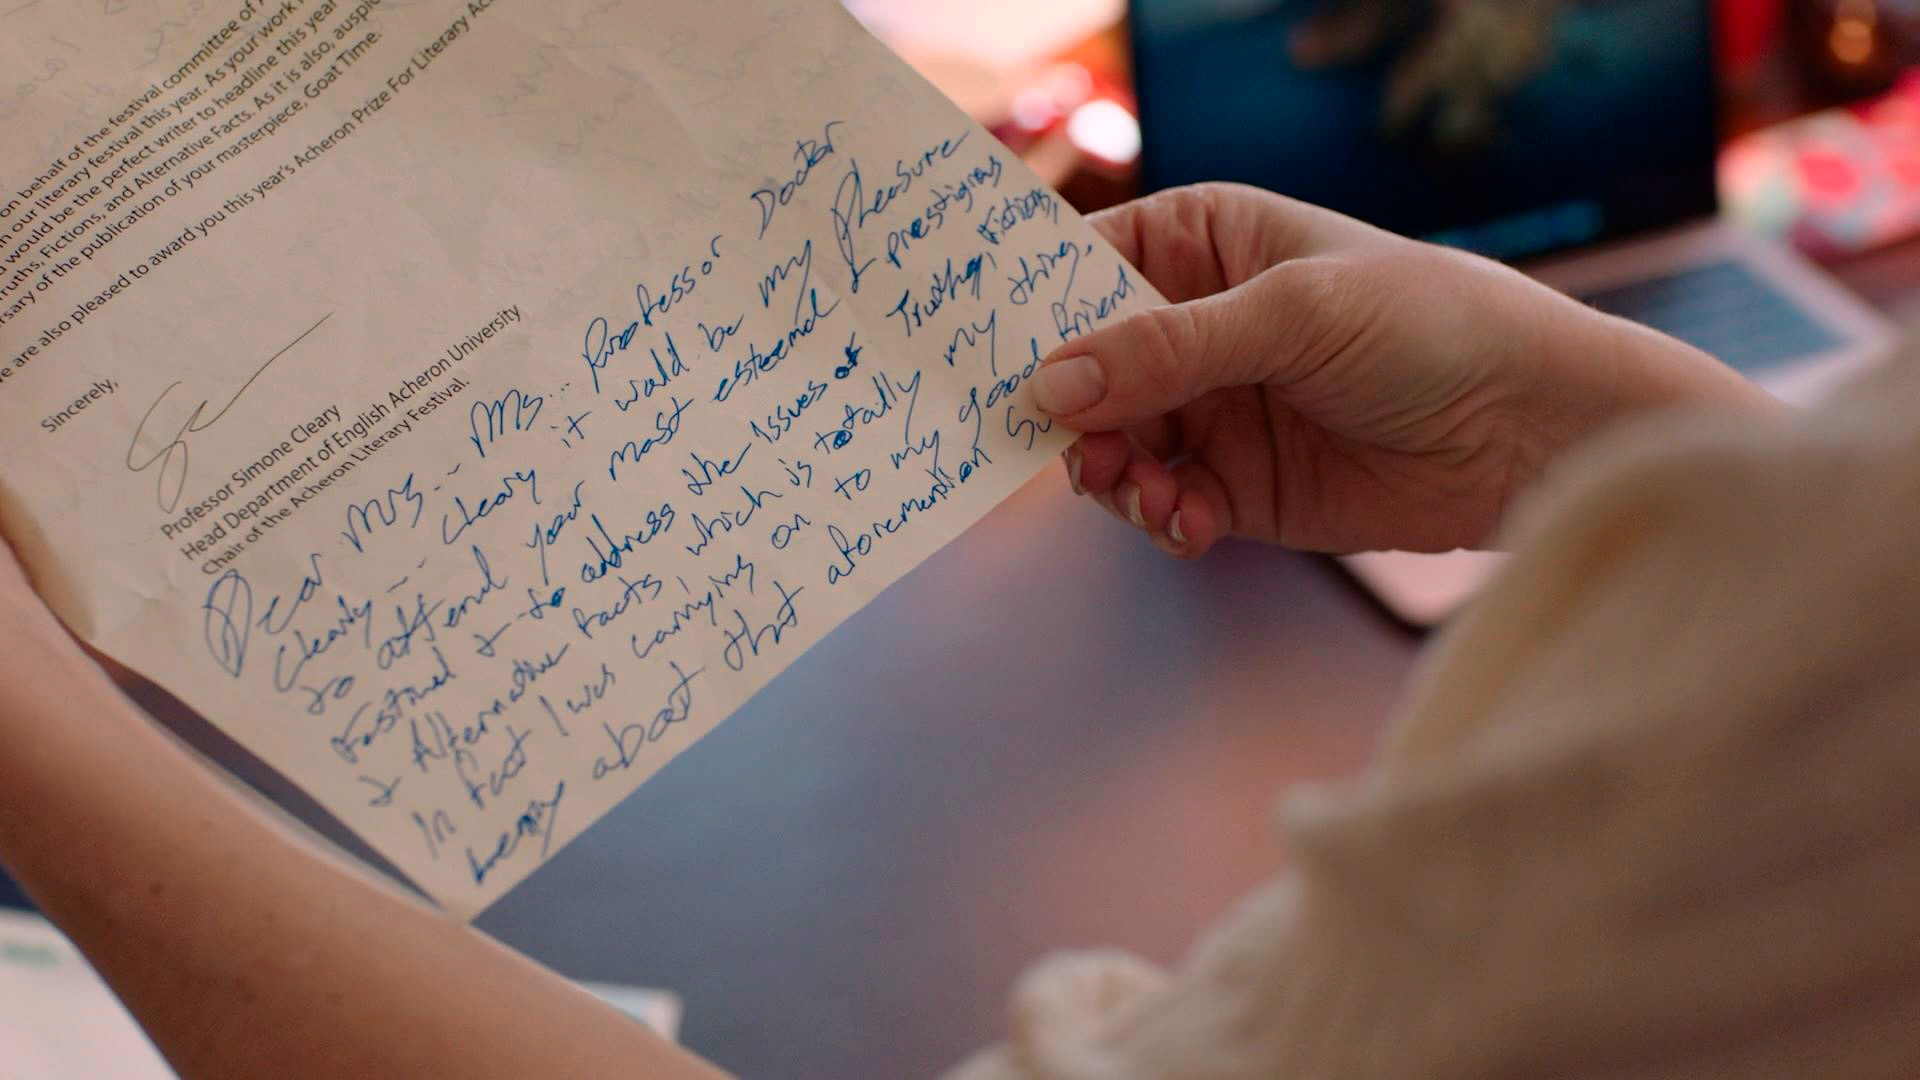 on behalf of the festival committee of
n our literary festival this year. As your work
would be the perfect writer to headline this year
ruths, Fictions, and Alternative Facts. As it is also, auspic
rsary of the publication of your masterpiece, Goat Time.
e are also pleased to award you this year's Acheron Prize For Literary Ac
Sincerely,
Professor Simone Cleary
Head Department of English Acheron University
Chair of the Acheron Literary Festival.
Dear Mrs... Ms... Professor Doctor
Cleary... Cleary it would be my pleasure
to attend your most esteemed & prestigious
Festival & to address the issues of Truths, Fictions,
& Alternative Facts, which is totally my thing.
In fact I was carrying on to my good friend
about that aforemention